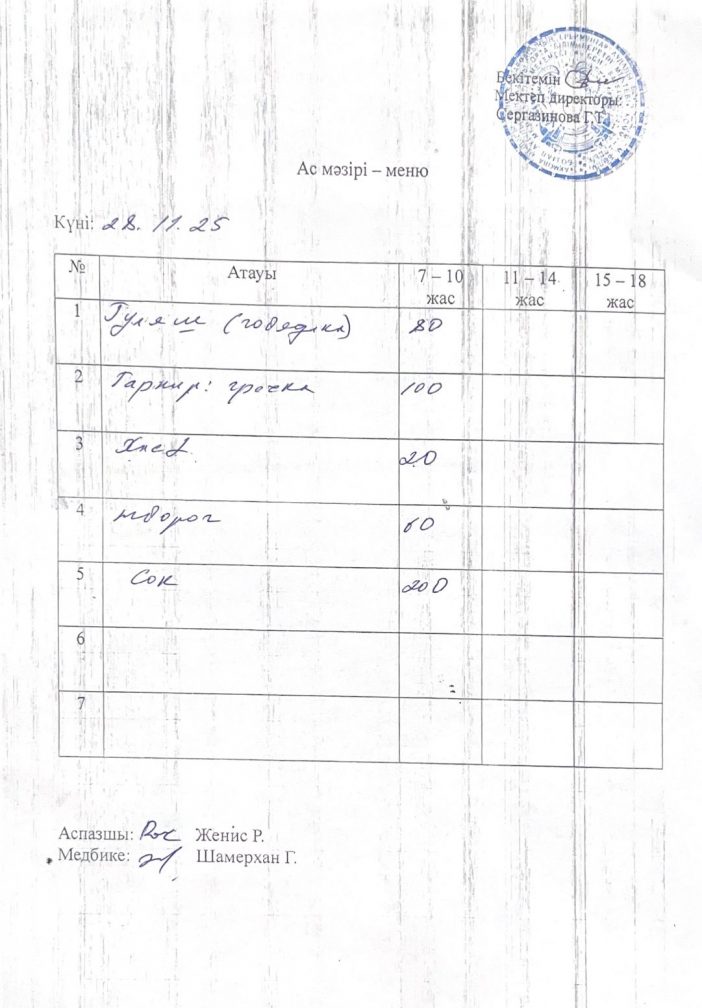 Бекітемін
Мектеп директоры:
Сергазинова Г.Т.
Ас мәзірі – меню
Күні: 28. 11. 25
№ Атауы 7 – 10 жас 11 – 14 жас 15 – 18 жас
1 Гуляш (говядина) 80
2 Гарнир: гречка 100
3 Хлеб 20
4 творог 60
5 Сок 200
6
7
Аспазшы: Женіс Р.
Медбике: Шамерхан Г.